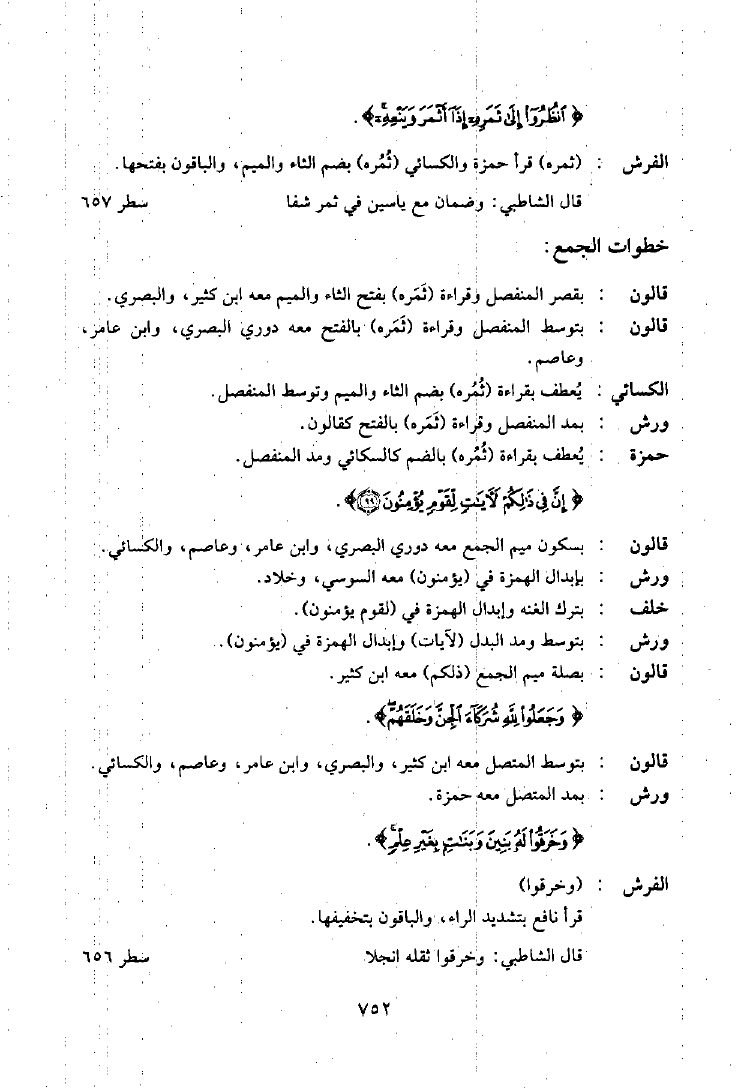 ﴿ ٱنظُرُوٓا۟ إِلَىٰ ثَمَرِهِۦٓ إِذَآ أَثْمَرَ وَيَنْعِهِۦٓ ۚ ﴾ .
الفرش : (ثمره) قرأ حمزة والكسائي (ثُمُره) بضم الثاء والميم، والباقون بفتحها.
قال الشاطبي: وضمان مع ياسين في ثمر شفا سطر ٦٥٧
خطوات الجمع :
قالون : بقصر المنفصل وقراءة (ثَمَره) بفتح الثاء والميم معه ابن كثير، والبصري.
قالون : بتوسط المنفصل وقراءة (ثَمَره) بالفتح معه دوري البصري، وابن عامر،
وعاصم.
الكسائي : يُعطف بقراءة (ثُمُره) بضم الثاء والميم وتوسط المنفصل.
ورش : بمد المنفصل وقراءة (ثَمَره) بالفتح كقالون.
حمزة : يُعطف بقراءة (ثُمُره) بالضم كالسكائي ومد المنفصل.
﴿ إِنَّ فِى ذَٰلِكُمْ لَـَٔايَـٰتٍ لِّقَوْمٍ يُؤْمِنُونَ ٩٩ ﴾ .
قالون : بسكون ميم الجمع معه دوري البصري، وابن عامر، وعاصم، والكسائي.
ورش : بإبدال الهمزة في (يؤمنون) معه السوسي، وخلاد.
خلف : بترك الغنه وإبدال الهمزة في (لقوم يؤمنون).
ورش : بتوسط ومد البدل (لآيات) وإبدال الهمزة في (يؤمنون).
قالون : بصلة ميم الجمع (ذلكم) معه ابن كثير.
﴿ وَجَعَلُوا۟ لِلَّهِ شُرَكَآءَ ٱلْجِنَّ وَخَلَقَهُمْ ۖ ﴾ .
قالون : بتوسط المتصل معه ابن كثير، والبصري، وابن عامر، وعاصم، والكسائي.
ورش : بمد المتصل معه حمزة.
﴿ وَخَرَقُوا۟ لَهُۥ بَنِينَ وَبَنَـٰتٍۭ بِغَيْرِ عِلْمٍ ۚ ﴾ .
الفرش : (وخرقوا)
قرأ نافع بتشديد الراء، والباقون بتخفيفها.
قال الشاطبي: وخرقوا ثقله انجلا سطر ٦٥٦
٧٥٢